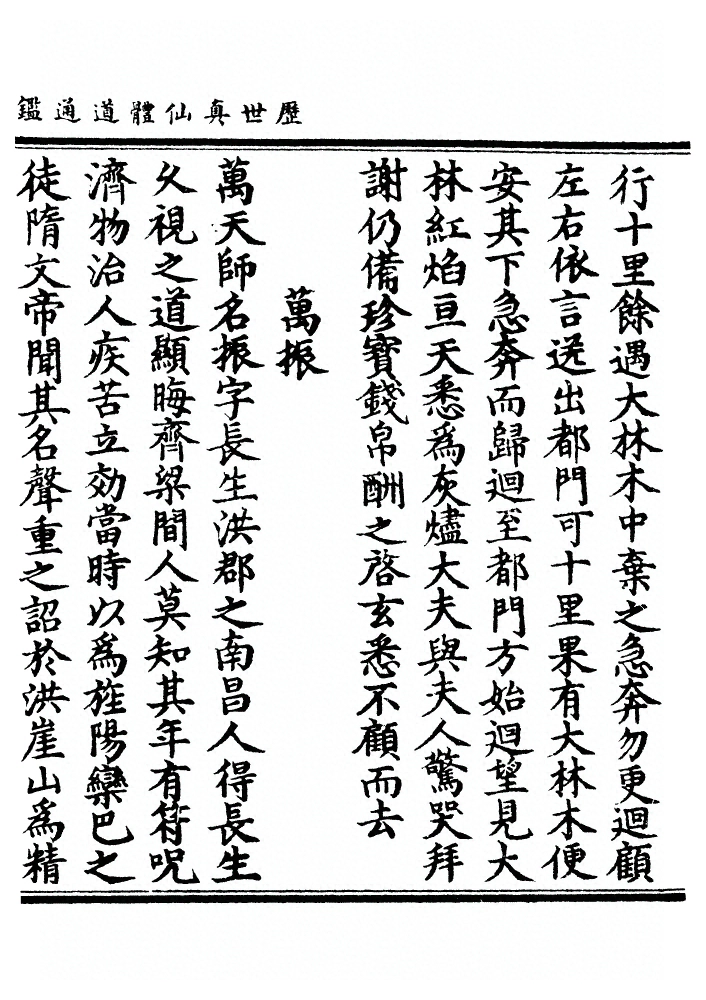 歷世真仙體道通鑑
行十里餘遇大林木中棄之急奔勿更迴顧
左右依言送出都門可十里果有大林木便
安其下急奔而歸迴至都門方始迴望見大
林紅焰亘天悉為灰燼大夫與夫人驚哭拜
謝仍備珍寶錢帛酬之啓玄悉不顧而去
萬振
萬天師名振字長生洪郡之南昌人得長生
久視之道顯晦齊梁間人莫知其年有符呪
濟物治人疾苦立効當時以為旌陽欒巴之
徒隋文帝聞其名聲重之詔於洪崖山為精